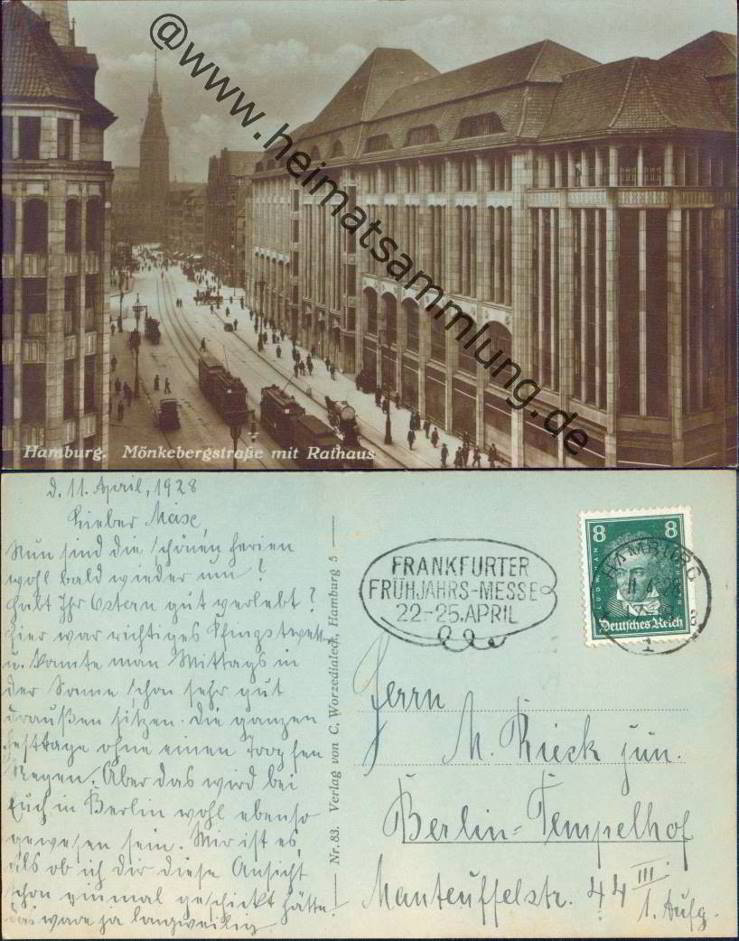 @www.heimatsammlung.de
Hamburg. Mönkebergstraße mit Rathaus
d. 11. April, 1928
Lieber Maxe,
Nun sind die schönen Ferien
wohl bald wieder um?
Habt Ihr Ostern gut verlebt?
Hier war richtiges Pfingstwett
u. konnte man Mittags in
der Sonne schon sehr gut
draußen sitzen. Die ganzen
Festtage ohne einen Tropfen
Regen. Aber das wird bei
Euch in Berlin wohl ebenso
gewesen sein. Mir ist es,
als ob ich dir diese Ansicht
schon einmal geschickt hätte.
das wäre ja langweilig
Nr. 83. Verlag von C. Worzedialeck, Hamburg 5
FRANKFURTER
FRÜHJAHRS-MESSE
22-25. APRIL
8 8
LUDW. VAN
Deutsches Reich
HAMBURG
1
Herrn
M. Rieck jun.
Berlin-Tempelhof
Manteuffelstr. 44 III.
1. Aufg.